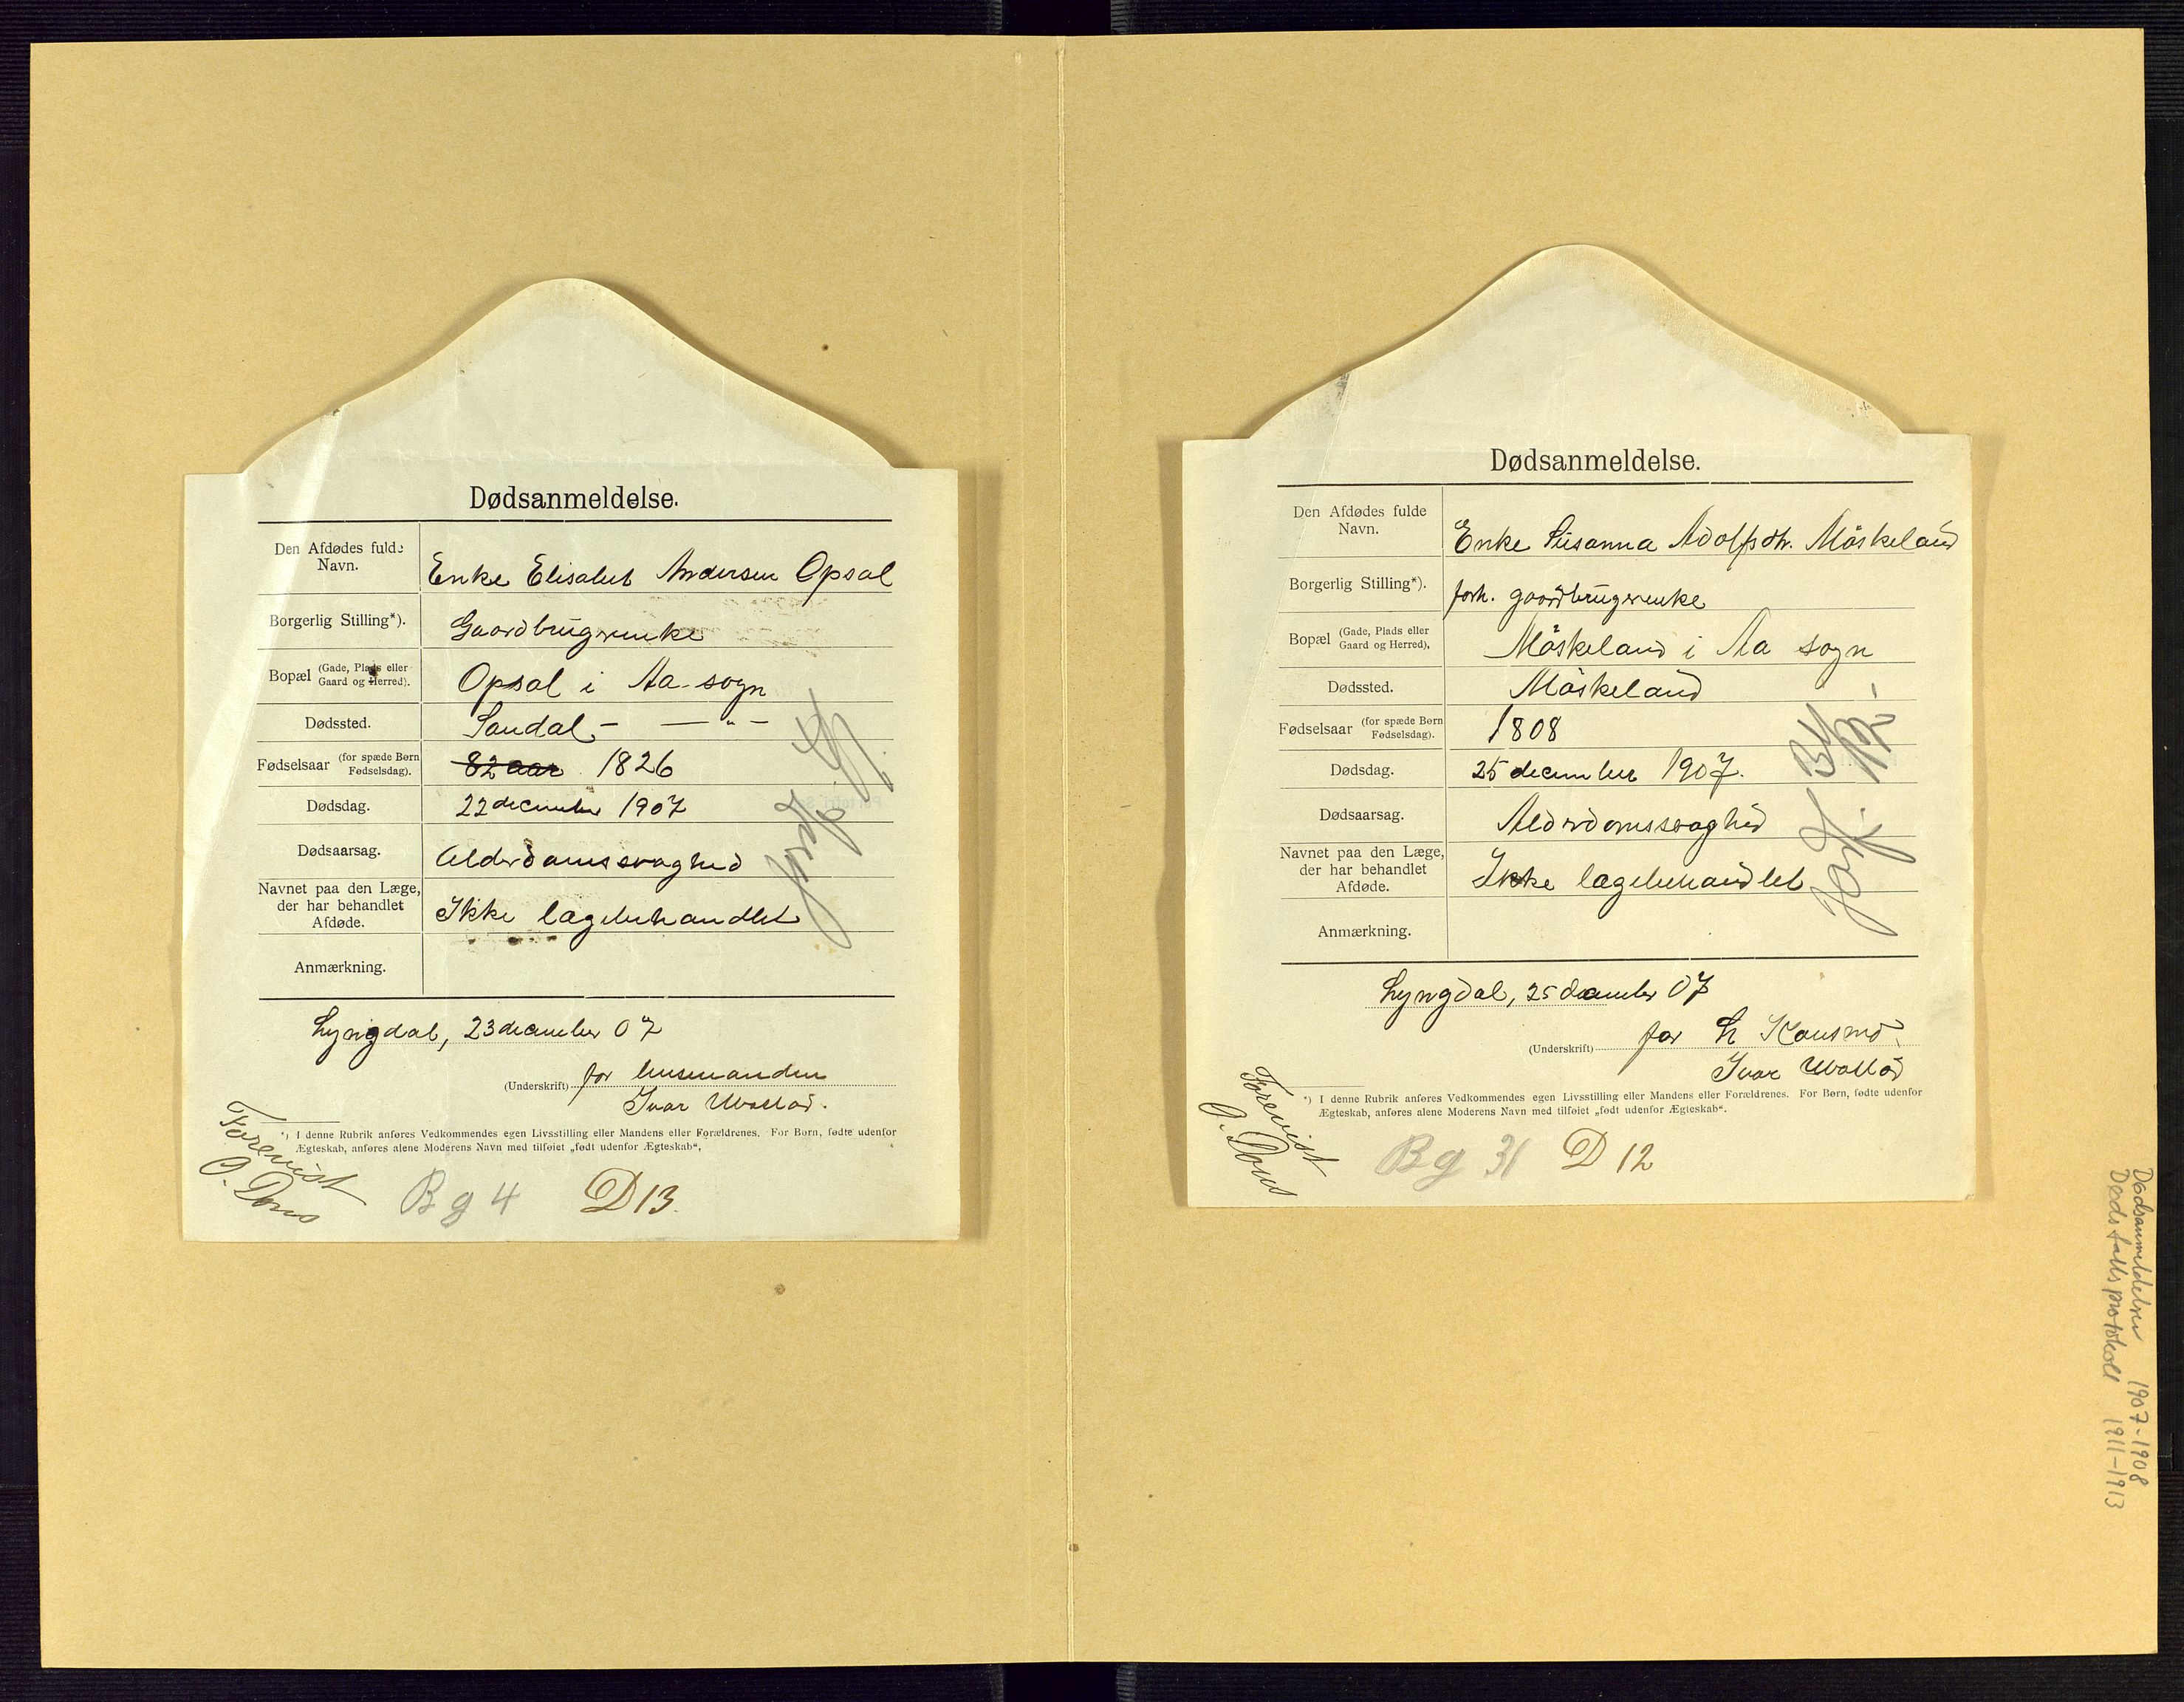 Dødsanmeldelse.
Den Afdødes fulde Navn. Enke Elisabet Andersen Opsal
Borgerlig Stilling*). Gaardbrugerenke
Bopæl (Gade, Plads eller Gaard og Herred). Opsal i Aa sogn
Dødssted. Sandal - — „ —
Fødselsaar (for spæde Børn Fødselsdag). 82 aar 1826
Dødsdag. 22 december 1907
Dødsaarsag. Alderdomssvaghed
Navnet paa den Læge, der har behandlet Afdøde. Ikke lægebehandlet
Anmærkning.
Lyngdal, 23 december 07
(Underskrift) for lensmanden
Ivar
*) I denne Rubrik anføres Vedkommendes egen Livsstilling eller Mandens eller Forældrenes. For Børn, fødte udenfor
Ægteskab, anføres alene Moderens Navn med tilføiet „født udenfor Ægteskab“.
Forevist
O. Dons
Bg 4 D 13.
Dødsanmeldelse.
Den Afdødes fulde Navn. Enke Susanna Adolfsdtr. Møskeland
Borgerlig Stilling*). forh. gaardbrugerenke
Bopæl (Gade, Plads eller Gaard og Herred). Møskeland i Aa sogn
Dødssted. Møskeland
Fødselsaar (for spæde Børn Fødselsdag). 1808
Dødsdag. 25 december 1907.
Dødsaarsag. Alderdomssvaghed
Navnet paa den Læge, der har behandlet Afdøde. Ikke lægebehandlet
Anmærkning.
Lyngdal, 25 december 07
(Underskrift) for L
Ivar
*) I denne Rubrik anføres Vedkommendes egen Livsstilling eller Mandens eller Forældrenes. For Børn, fødte udenfor
Ægteskab, anføres alene Moderens Navn med tilføiet „født udenfor Ægteskab“.
Forevist
O. Dons
Bg 31 D 12
Dødsanmeldelser 1907-1908
Dødsfallsprotokoll 1911-1913